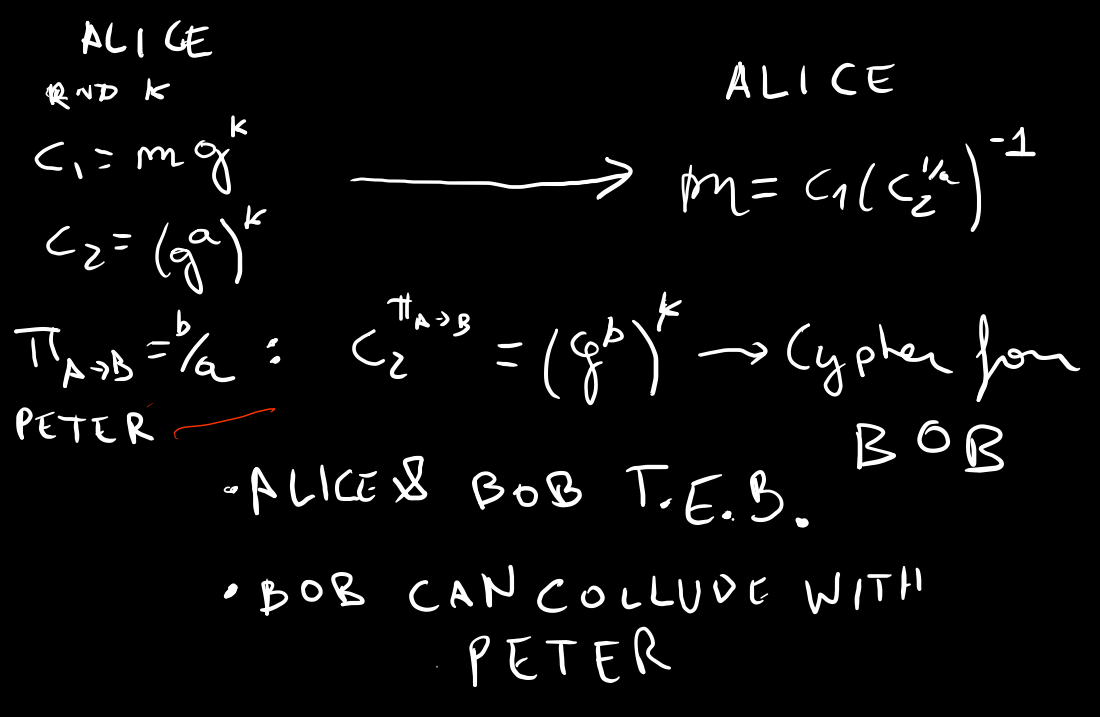 ALICE
RND K
C₁ = m g^k
C₂ = (g^a)^k
ALICE
m = C₁(C₂^{1/a})^{-1}
π_{A→B} = b/a : C₂^{π_{A→B}} = (g^b)^k → Cypher for
BOB
PETER
• ALICE & BOB T.E.B.
• BOB CAN COLLUDE WITH
PETER